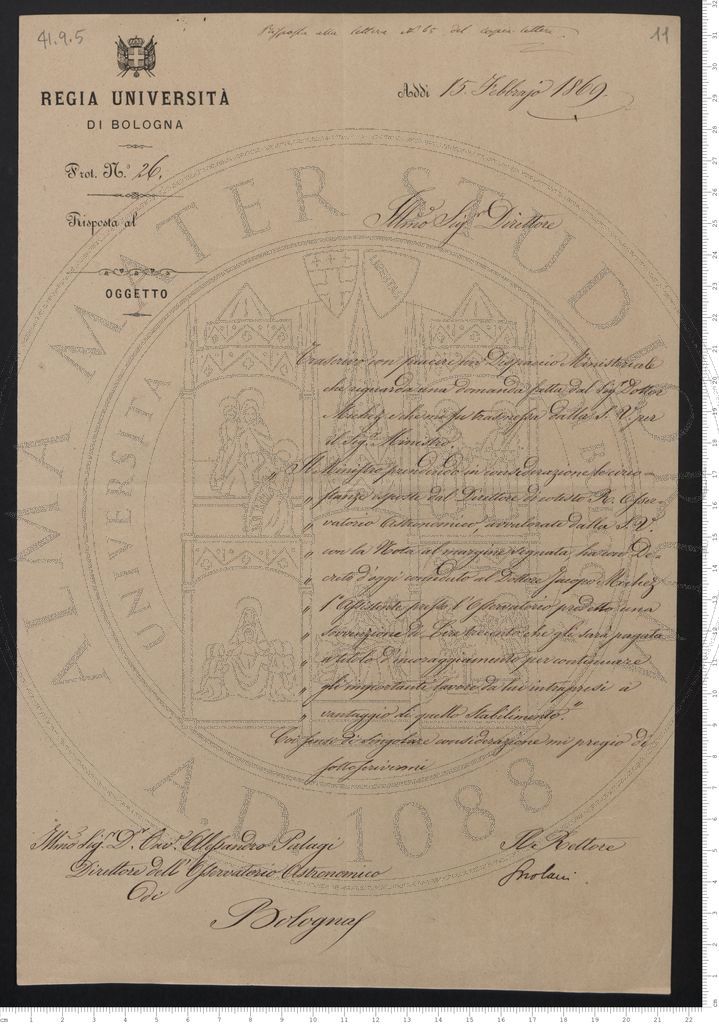 41.9.5
Risposta alla lettera N.º 65 del copia-lettere.
11
REGIA UNIVERSITÀ
DI BOLOGNA
Addì 15. Febbrajo 1869.
Prot. N.º 26.
Risposta al
OGGETTO
Illmo Sigr Direttore
Trascrivo con piacere un Dispaccio Ministeriale
che riguarda una domanda fatta dal Sigr Dottor
Michez e che mi fu trasmessa dalla S. V. per
il Sigr Ministro
" Il Ministro prendendo in considerazione le circo-
" stanze esposte dal Direttore di codesto R. Osser-
" vatorio Astronomico, avvalorate dalla S. V.
" con la Nota al margine segnata, ha con De-
" creto d'oggi conceduto al Dottore Jacopo Michez
" l'Assistente presso l'Osservatorio predetto una
" sovvenzione di Lire trecento che gli sarà pagata
" a titolo d'incoraggiamento per continuare
" gli importanti lavori da lui intrapresi a
" vantaggio di quello Stabilimento."
Con sensi di singolare considerazione mi pregio di
sottoscrivermi
Illmo Sigr Dr Cavr Alessandro Palagi
Direttore dell'Osservatorio Astronomico
di
Bologna
Il Rettore
ALMA MATER STUDIORUM
UNIVERSITA
A.D. 1088